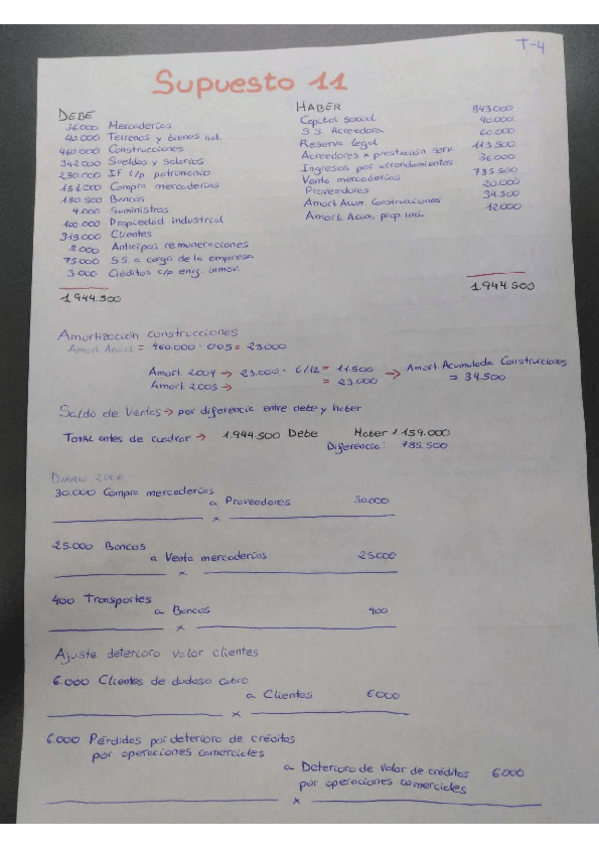 T-4
Supuesto 11
DEBE
36000 Mercaderías
40.000 Terrenos y bienes nat.
460.000 Construcciones
342000 Sueldos y salarios
230.000 IF l/p patrimonio
151.000 Compra mercaderías
180.500 Bancos
4.000 Suministros
100.000 Propiedad Industrial
319.000 Clientes
Anticipos remuneraciones
75.000 S.S. a cargo de la empresa
3.000 Créditos c/p enaj. inmov.
1.944.500
HABER
Capital social 843.000
S.S. Acreedora 40.000
Reserva legal 60.000
Acreedores x prestación serv 113.500
Ingresos por arrendamientos 36000
Venta mercaderías 785.500
Proveedores 20.000
Amort. Acum. Construcciones 34.500
Amort. Acum. prop. ind. 12.000
1.944.500
Amortización construcciones
Amort. Anual = 460.000 · 0'05 = 23000
Amort. 2004 → 23.000 · 6/12 = 11500 → Amort. Acumulada Construcciones
Amort. 2005 → = 23.000 = 34.500
Saldo de Ventas → por diferencia entre debe y haber
TOTAL antes de cuadrar → 1.944.500 Debe Haber 1.159.000
Diferencia: 785.500
DIARIO 2006
30.000 Compra mercaderías
a Proveedores 30.000
x
25.000 Bancos
a Venta mercaderías 25000
x
400 Transportes
a Bancos 400
x
Ajuste deterioro valor clientes
6.000 Clientes de dudoso cobro
a Clientes 6000
x
6.000 Pérdidas por deterioro de créditos
por operaciones comerciales
a Deterioro de valor de créditos 6000
por operaciones comerciales
x